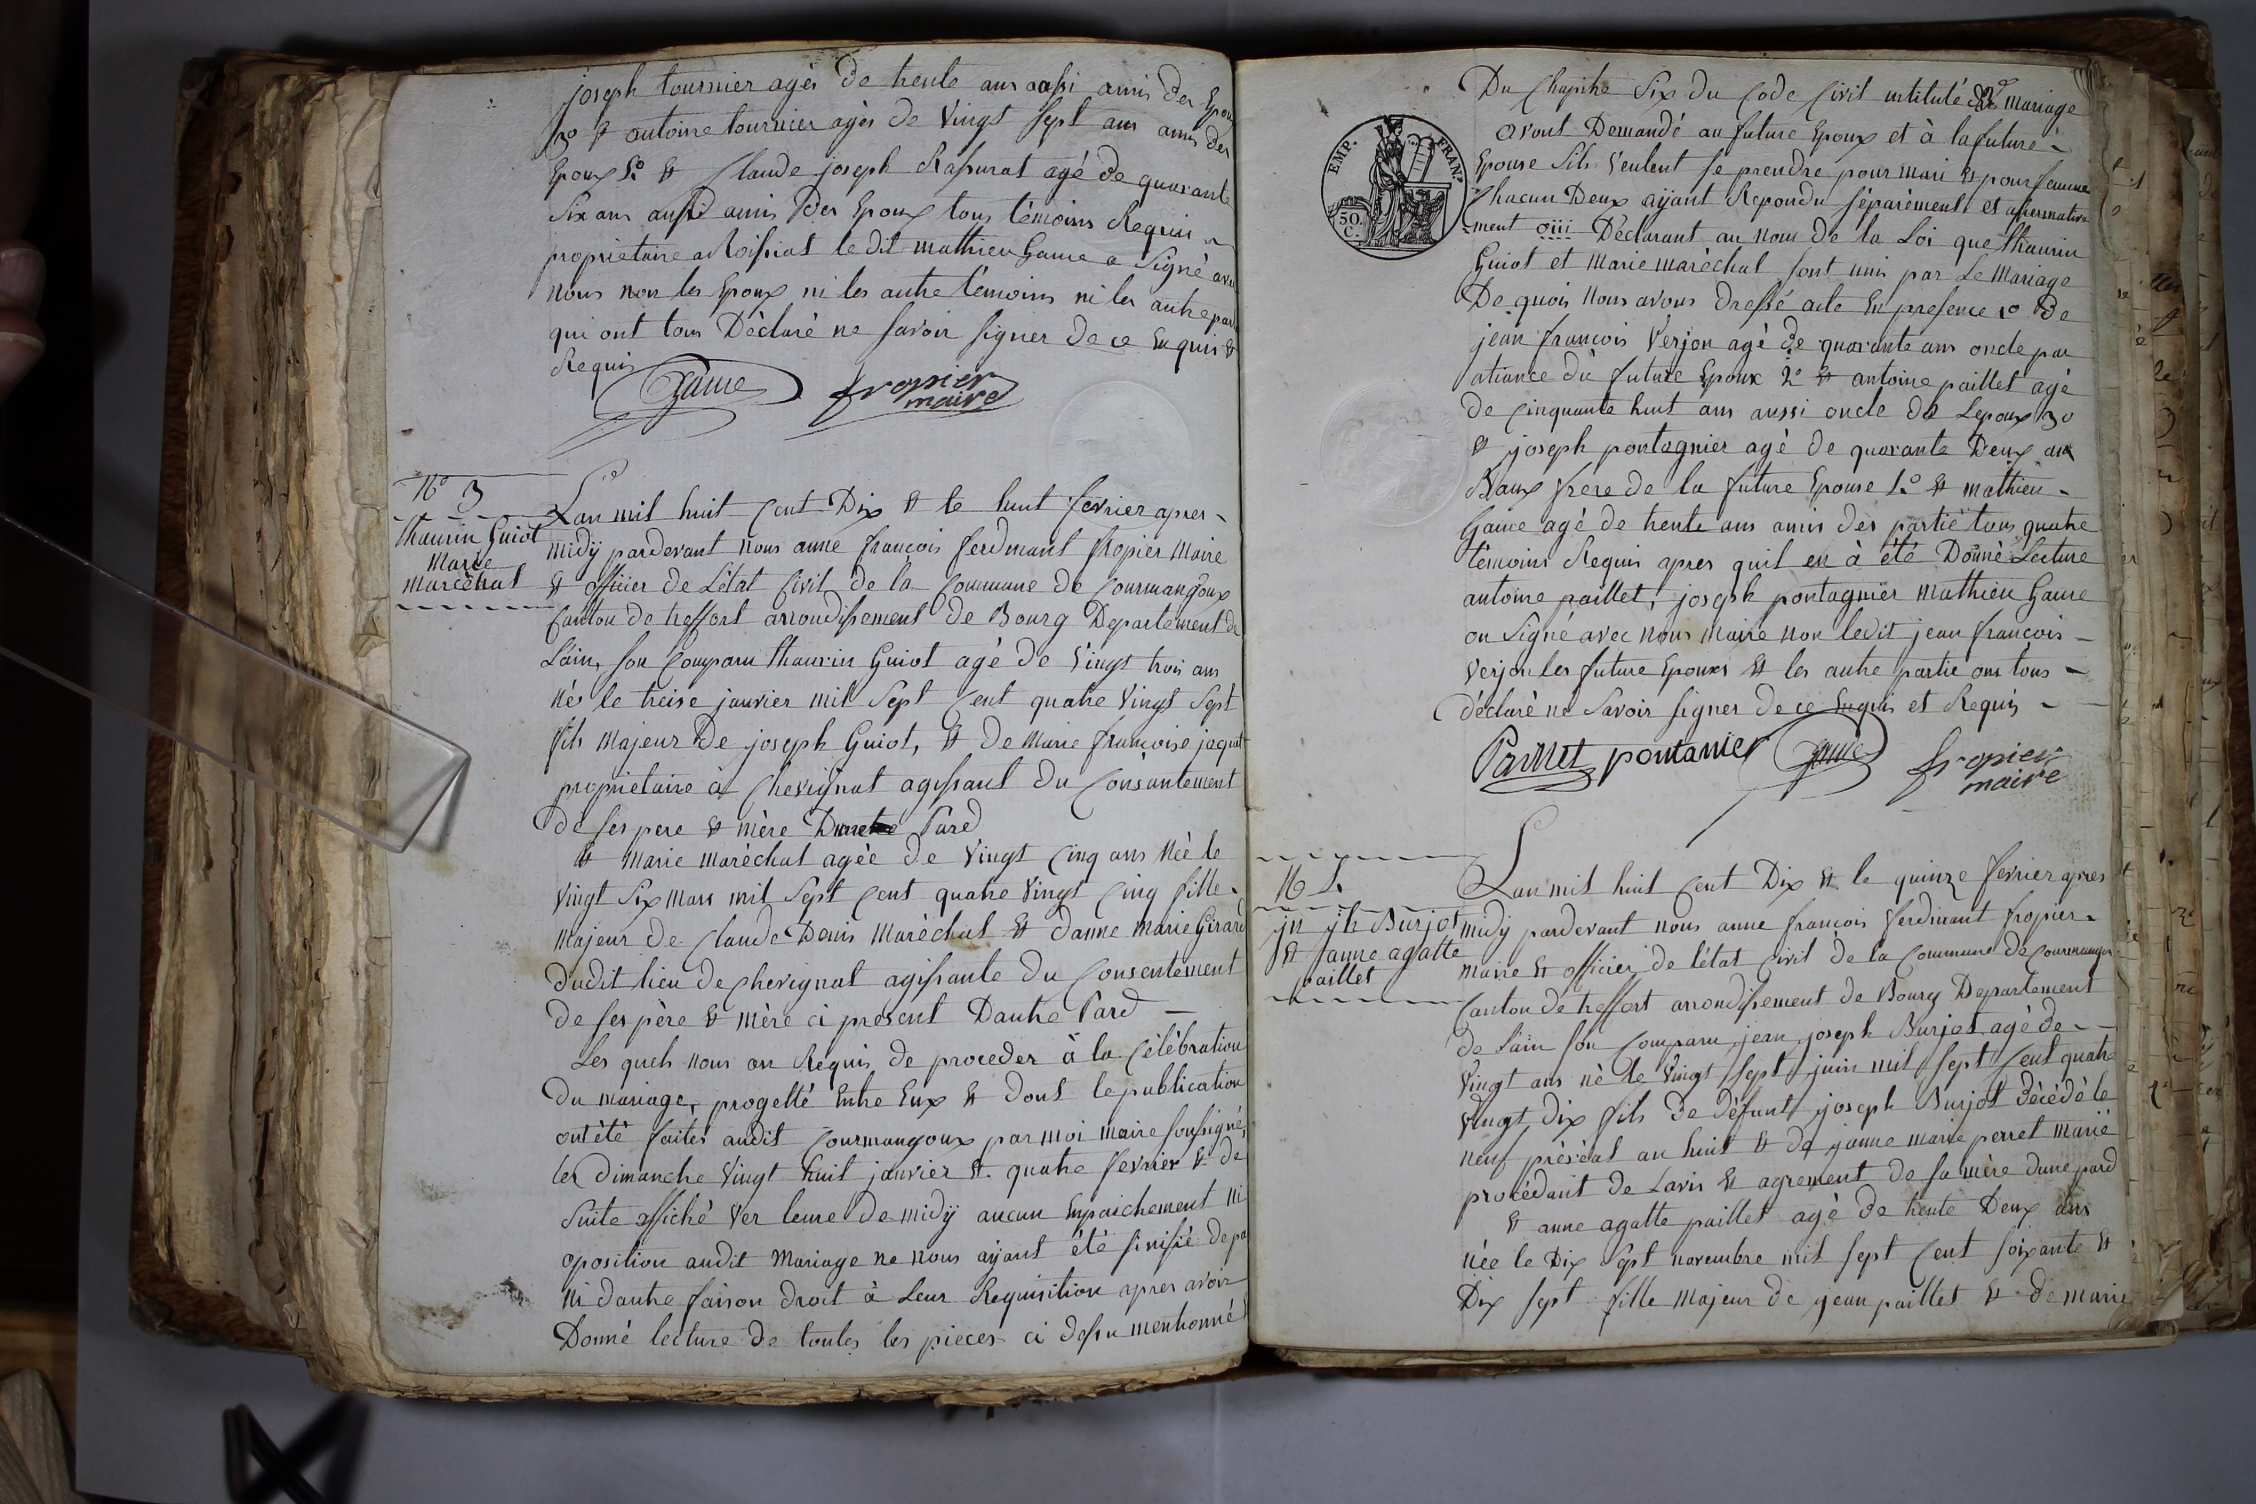 joseph tournier agés de trente ans aussi amis des Epoux
3o & antoine tournier agés de Vingt sept ans amis des
Epoux 4o & Claude joseph Rapurat agé de quarante
Six ans aussi amis des Epoux tous témoins Requis
propriétaire a Roissiat le dit mathieu Game a Signé avec
nous non les Epoux ni les autre témoins ni les autre part
qui ont tous Déclaré ne savoir signer de ce Enquis &
Requis
Game fropier
maire
No 3
thaurin Guiot
Marie
maréchal
Lan mil huit Cent Dix & le huit février apres
midÿ pardevant nous anne françois ferdinant fropier Maire
& officier de L'état Civil de la Commune de Courmangoux
Canton de treffort arrondissement de Bourg Departement de
Lain, son Comparu thaurin Guiot agé de Vingt trois ans
nés le treise janvier mil Sept Cent quatre Vingt Sept
fils majeur de joseph Guiot, & de Marie françoise jacquet
propriétaire à Chevignat agissant du Consantement
de ses pere & mère Dune Pard
& marie maréchal agée de Vingt Cinq ans Née le
Vingt Six mars mil Sept Cent quatre Vingt Cinq fille
majeur de Claude Denis Maréchal & danne marie Girard
dudit lieu de Chevignat agissante du Consentement
de ses père & mère ci present Dautre Pard
Les quels nous on Requis de proceder à la Célébration
du mariage, progetté Entre Eux & dont le publication
ont été faites audit Courmangoux par moi maire soussigné,
les Dimanche Vingt huit janvier & quatre fevrier & de
suite affiché Ver leure de midÿ aucun Enpaichement ni
oposition audit Mariage ne nous aÿant été sinifié de pa
ni dautre faison droit à Leur Requisition apres avoir
Donné lecture de toutes les pieces ci dessu mentionné
EMP. FRANS.
50.
C.
Du Chapitre Six du Code Civil intitulé du mariage
avont Demandé au future Epoux et à la future
Epouse Sils Veulent se prendre pour mari & pour femme
Chacun Deux aÿant Repondu séparément et afirmative
ment oiii Déclarant au nom de la Loi que thaurin
Guiot et Marie maréchal sont unis par Le Mariage
De quois Nous avons dressé acte En presence 1o de
jean françois Verjon agé de quarante ans oncle par
aliance du future Epoux 2o & antoine paillet agé
de Cinquante huit ans aussi oncle de Lepoux 3o
& joseph pontagnier agé de quarante Deux ans
Baux frere de la future Epouse 4o & mathieu
Game agé de trente ans amis des partie tous quatre
témoins Requis apres quil en à été Donné Lecture
antoine paillet, joseph pontagnier Mathieu Game
on Signé avec nous Maire non ledit jean francois
Verjon les future Epouxs & les autre partie ons tous
déclaré ne Savoir signer de ce Enquis et Requis
Paillet pontanier Game fropier
maire
No 4.
jn jh Burjot
& janne agatte
paillet
Lan mil huit Cent Dix & le quinze fevrier apres
midy pardevant nous anne françois ferdinant fropier
maire & officier de létat Civil de la Commune de Courmangou
Canton de treffort arrondissement de Bourg Departement
de Lain son Comparu jean joseph Burjot agé de
Vingt ans né le Vingt sept juin mil Sept Cent quatre
Vingt Dix fils de défunt joseph Burjot décédé le
neuf an huit & de janne marie perret Marié
procédant de Lavis & agrement de sa mère dune pard
& anne agatte paillet agé de trente Deux ans
née le Dix Sept novembre mil sept Cent soixante &
Dix sept fille majeur de jean paillet & de marie